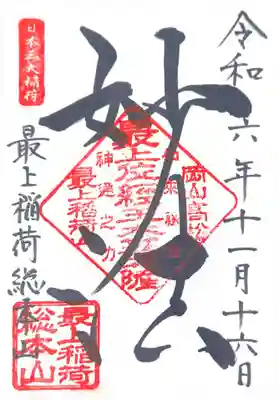 令和六年十一月十六日
妙法
日本三大稲荷
最上稲荷総本山
岡山高松
最上位経王大菩薩
神通之力
最上稲荷山
最上稲荷
総本山